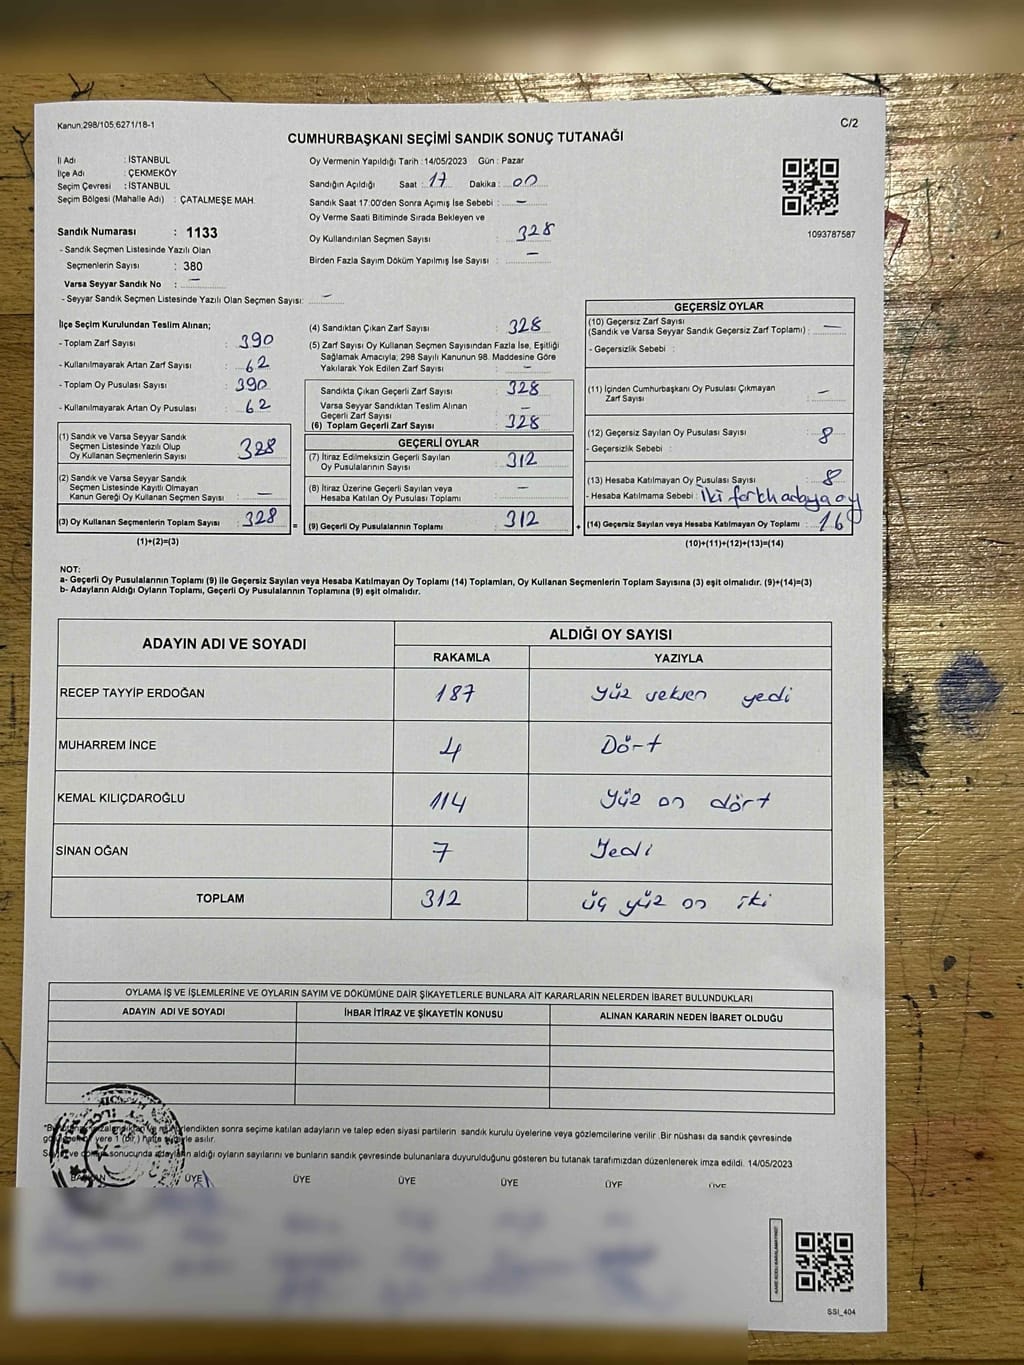 Kanun;298/105;6271/18-1
C/2
CUMHURBAŞKANI SEÇİMİ SANDIK SONUÇ TUTANAĞI
İl Adı : İSTANBUL
İlçe Adı : ÇEKMEKÖY
Seçim Çevresi : İSTANBUL
Seçim Bölgesi (Mahalle Adı) : ÇATALMEŞE MAH.
Sandık Numarası : 1133
- Sandık Seçmen Listesinde Yazılı Olan
Seçmenlerin Sayısı : 380
Varsa Seyyar Sandık No : —
- Seyyar Sandık Seçmen Listesinde Yazılı Olan Seçmen Sayısı: —
Oy Vermenin Yapıldığı Tarih : 14/05/2023 Gün : Pazar
Sandığın Açıldığı Saat : 17 Dakika : 00
Sandık Saat 17:00'den Sonra Açımış İse Sebebi : —
Oy Verme Saati Bitiminde Sırada Bekleyen ve
Oy Kullandırılan Seçmen Sayısı : 328
Birden Fazla Sayım Döküm Yapılmış İse Sayısı : —
1093787587
İlçe Seçim Kurulundan Teslim Alınan;
- Toplam Zarf Sayısı : 390
- Kullanılmayarak Artan Zarf Sayısı : 62
- Toplam Oy Pusulası Sayısı : 390
- Kullanılmayarak Artan Oy Pusulası : 62
(1) Sandık ve Varsa Seyyar Sandık
Seçmen Listesinde Yazılı Olup
Oy Kullanan Seçmenlerin Sayısı : 328
(2) Sandık ve Varsa Seyyar Sandık
Seçmen Listesinde Kayıtlı Olmayan
Kanun Gereği Oy Kullanan Seçmen Sayısı : —
(3) Oy Kullanan Seçmenlerin Toplam Sayısı : 328
(1)+(2)=(3)
(4) Sandıktan Çıkan Zarf Sayısı : 328
(5) Zarf Sayısı Oy Kullanan Seçmen Sayısından Fazla İse, Eşitliği
Sağlamak Amacıyla; 298 Sayılı Kanunun 98. Maddesine Göre
Yakılarak Yok Edilen Zarf Sayısı : —
Sandıkta Çıkan Geçerli Zarf Sayısı : 328
Varsa Seyyar Sandıktan Teslim Alınan
Geçerli Zarf Sayısı : —
(6) Toplam Geçerli Zarf Sayısı : 328
GEÇERLİ OYLAR
(7) İtiraz Edilmeksizin Geçerli Sayılan
Oy Pusulalarının Sayısı : 312
(8) İtiraz Üzerine Geçerli Sayılan veya
Hesaba Katılan Oy Pusulası Toplamı : —
= (9) Geçerli Oy Pusulalarının Toplamı : 312
GEÇERSİZ OYLAR
(10) Geçersiz Zarf Sayısı
(Sandık ve Varsa Seyyar Sandık Geçersiz Zarf Toplamı) : —
- Geçersizlik Sebebi :
(11) İçinden Cumhurbaşkanı Oy Pusulası Çıkmayan
Zarf Sayısı : —
(12) Geçersiz Sayılan Oy Pusulası Sayısı : 8
- Geçersizlik Sebebi :
(13) Hesaba Katılmayan Oy Pusulası Sayısı : 8
- Hesaba Katılmama Sebebi : İki farklı adaya oy
+ (14) Geçersiz Sayılan veya Hesaba Katılmayan Oy Toplamı : 16
(10)+(11)+(12)+(13)=(14)
NOT:
a- Geçerli Oy Pusulalarının Toplamı (9) ile Geçersiz Sayılan veya Hesaba Katılmayan Oy Toplamı (14) Toplamları, Oy Kullanan Seçmenlerin Toplam Sayısına (3) eşit olmalıdır. (9)+(14)=(3)
b- Adayların Aldığı Oyların Toplamı, Geçerli Oy Pusulalarının Toplamına (9) eşit olmalıdır.
ADAYIN ADI VE SOYADI
ALDIĞI OY SAYISI
RAKAMLA YAZIYLA
RECEP TAYYİP ERDOĞAN 187 Yüz seksen yedi
MUHARREM İNCE 4 Dört
KEMAL KILIÇDAROĞLU 114 Yüz on dört
SİNAN OĞAN 7 Yedi
TOPLAM 312 üç yüz on iki
OYLAMA İŞ VE İŞLEMLERİNE VE OYLARIN SAYIM VE DÖKÜMÜNE DAİR ŞİKAYETLERLE BUNLARA AİT KARARLARIN NELERDEN İBARET BULUNDUKLARI
ADAYIN ADI VE SOYADI İHBAR İTİRAZ VE ŞİKAYETİN KONUSU ALINAN KARARIN NEDEN İBARET OLDUĞU
sonra seçime katılan adayların ve talep eden siyasi partilerin sandık kurulu üyelerine veya gözlemcilerine verilir .Bir nüshası da sandık çevresinde
yere 1 (bir) hafta süreyle asılır.
sonucunda adayların aldığı oyların sayılarını ve bunların sandık çevresinde bulunanlara duyurulduğunu gösteren bu tutanak tarafımızdan düzenlenerek imza edildi. 14/05/2023
BAŞKAN ÜYE ÜYE ÜYE ÜYE ÜYE ÜYE
SSI_404